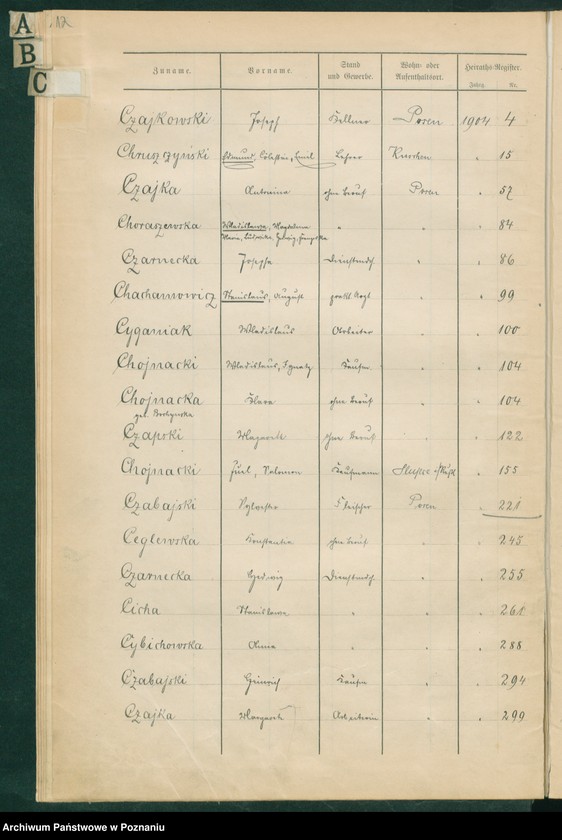 12
A
B
C
Zuname. Vorname. Stand und Gewerbe. Wohn- oder Aufenthaltsort. Heiraths-Register.
Jahrg. Nr.
Czajkowski Joseph Kellner Posen 1904 4
Chruszczyński Edmund, Cölestin, Emil Lehrer " 15
Czajka Antonina ohne Beruf Posen " 57
Choraszewska Wladislawa, Magdalena " " " 84
Maria, Ludwika, Hedwig, Franziska
Czarnecka Josepha Dienstmdch. " " 86
Chachamowicz Stanislaus, August prakt. Arzt " " 99
Cyganiak Wladislaus Arbeiter " " 100
Chojnacki Wladislaus, Ignatz Kaufm. " " 104
Chojnacka Klara ohne Beruf " " 104
geb.
Czapski Margareth ohne Beruf " " 122
Chojnacki Juel, Salomon Kaufmann " 155
Czabajski Sylvester Fleischer Posen " 221
Ceglewska Konstantia ohne Beruf " " 245
Czarnecka Hedwig Dienstmdch. " " 255
Cicha Stanislawa " " " 261
Cybichowska Anna " " " 288
Czabajski Heinrich Kaufm. " " 294
Czajka Margareth Arbeiterin " " 299
Archiwum Państwowe w Poznaniu